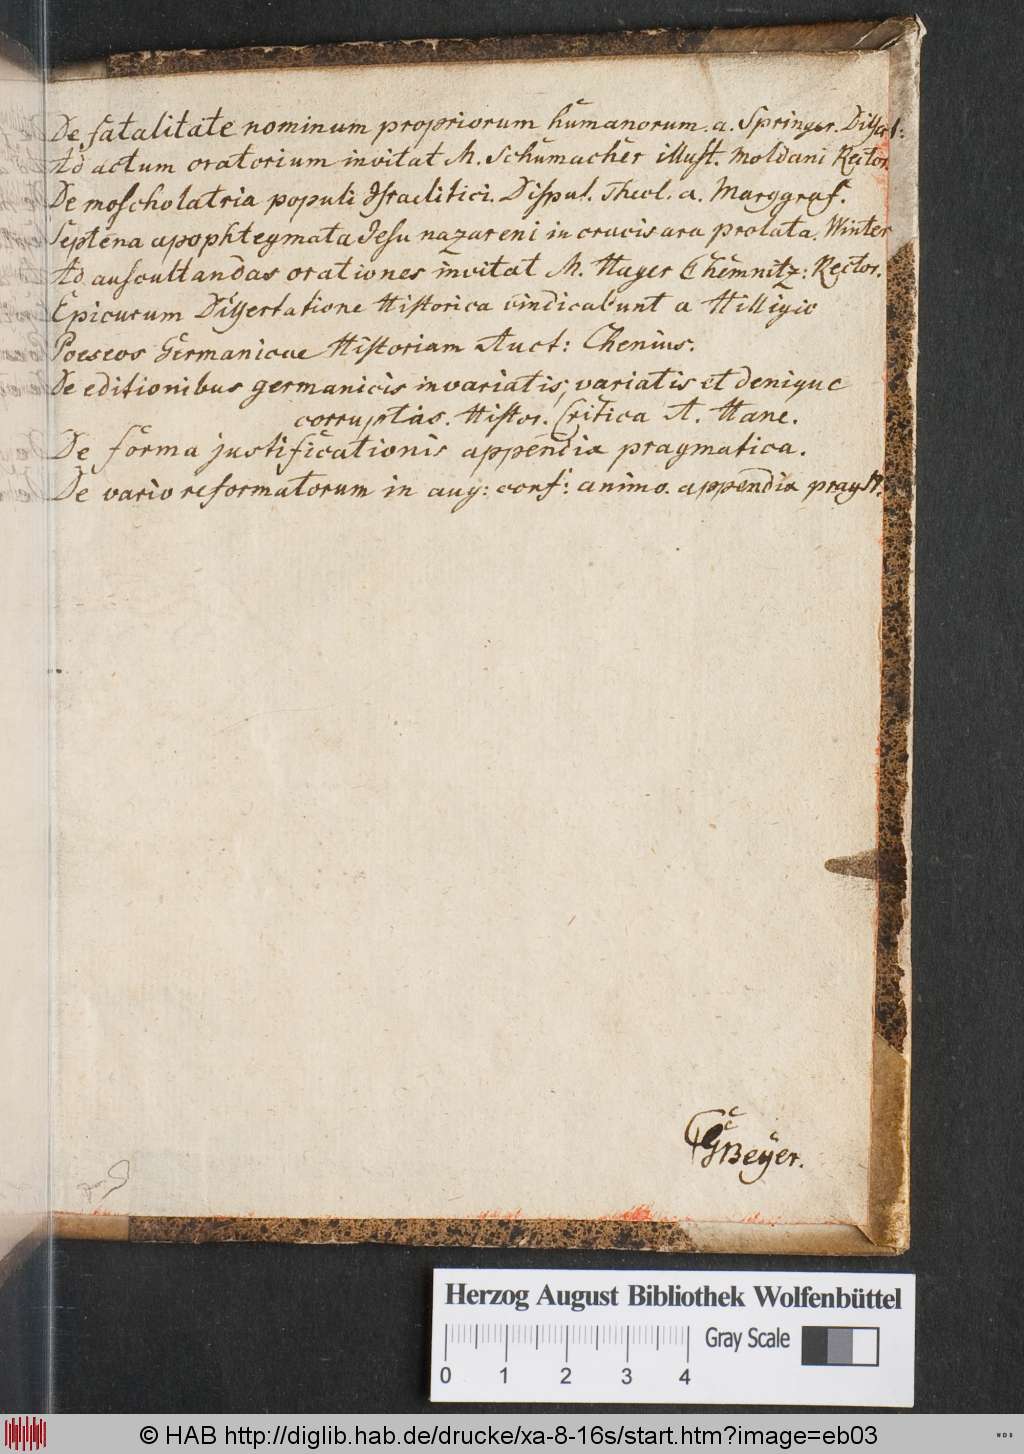 De fatalitate nominum propriorum humanorum. a. Springer. Dissert:
Ad actum oratorium invitat M. Schumacher illust. Moldani Rector.
De moscholatria populi Israelitici. Disput. Theol. a. Marggraf.
Septena apophtegmata Jesu nazareni in crucis ara prolata. Winter
Ad auscultandas orationes invitat M. Hager Chemnitz: Rector.
Epicurum Dissertatione Historica vindicabunt a Hilligio
Poeseos Germanicae Historiam Auct: Chenius.
De editionibus germanicis invariatis, variatis et denique
corruptis. Histor. Critica A. Hane.
De forma justificationis appendix pragmatica.
De vario reformatorum in aug: conf: animo. appendix prag
Beÿer.
Herzog August Bibliothek Wolfenbüttel
Gray Scale
0 1 2 3 4
© HAB http://diglib.hab.de/drucke/xa-8-16s/start.htm?image=eb03